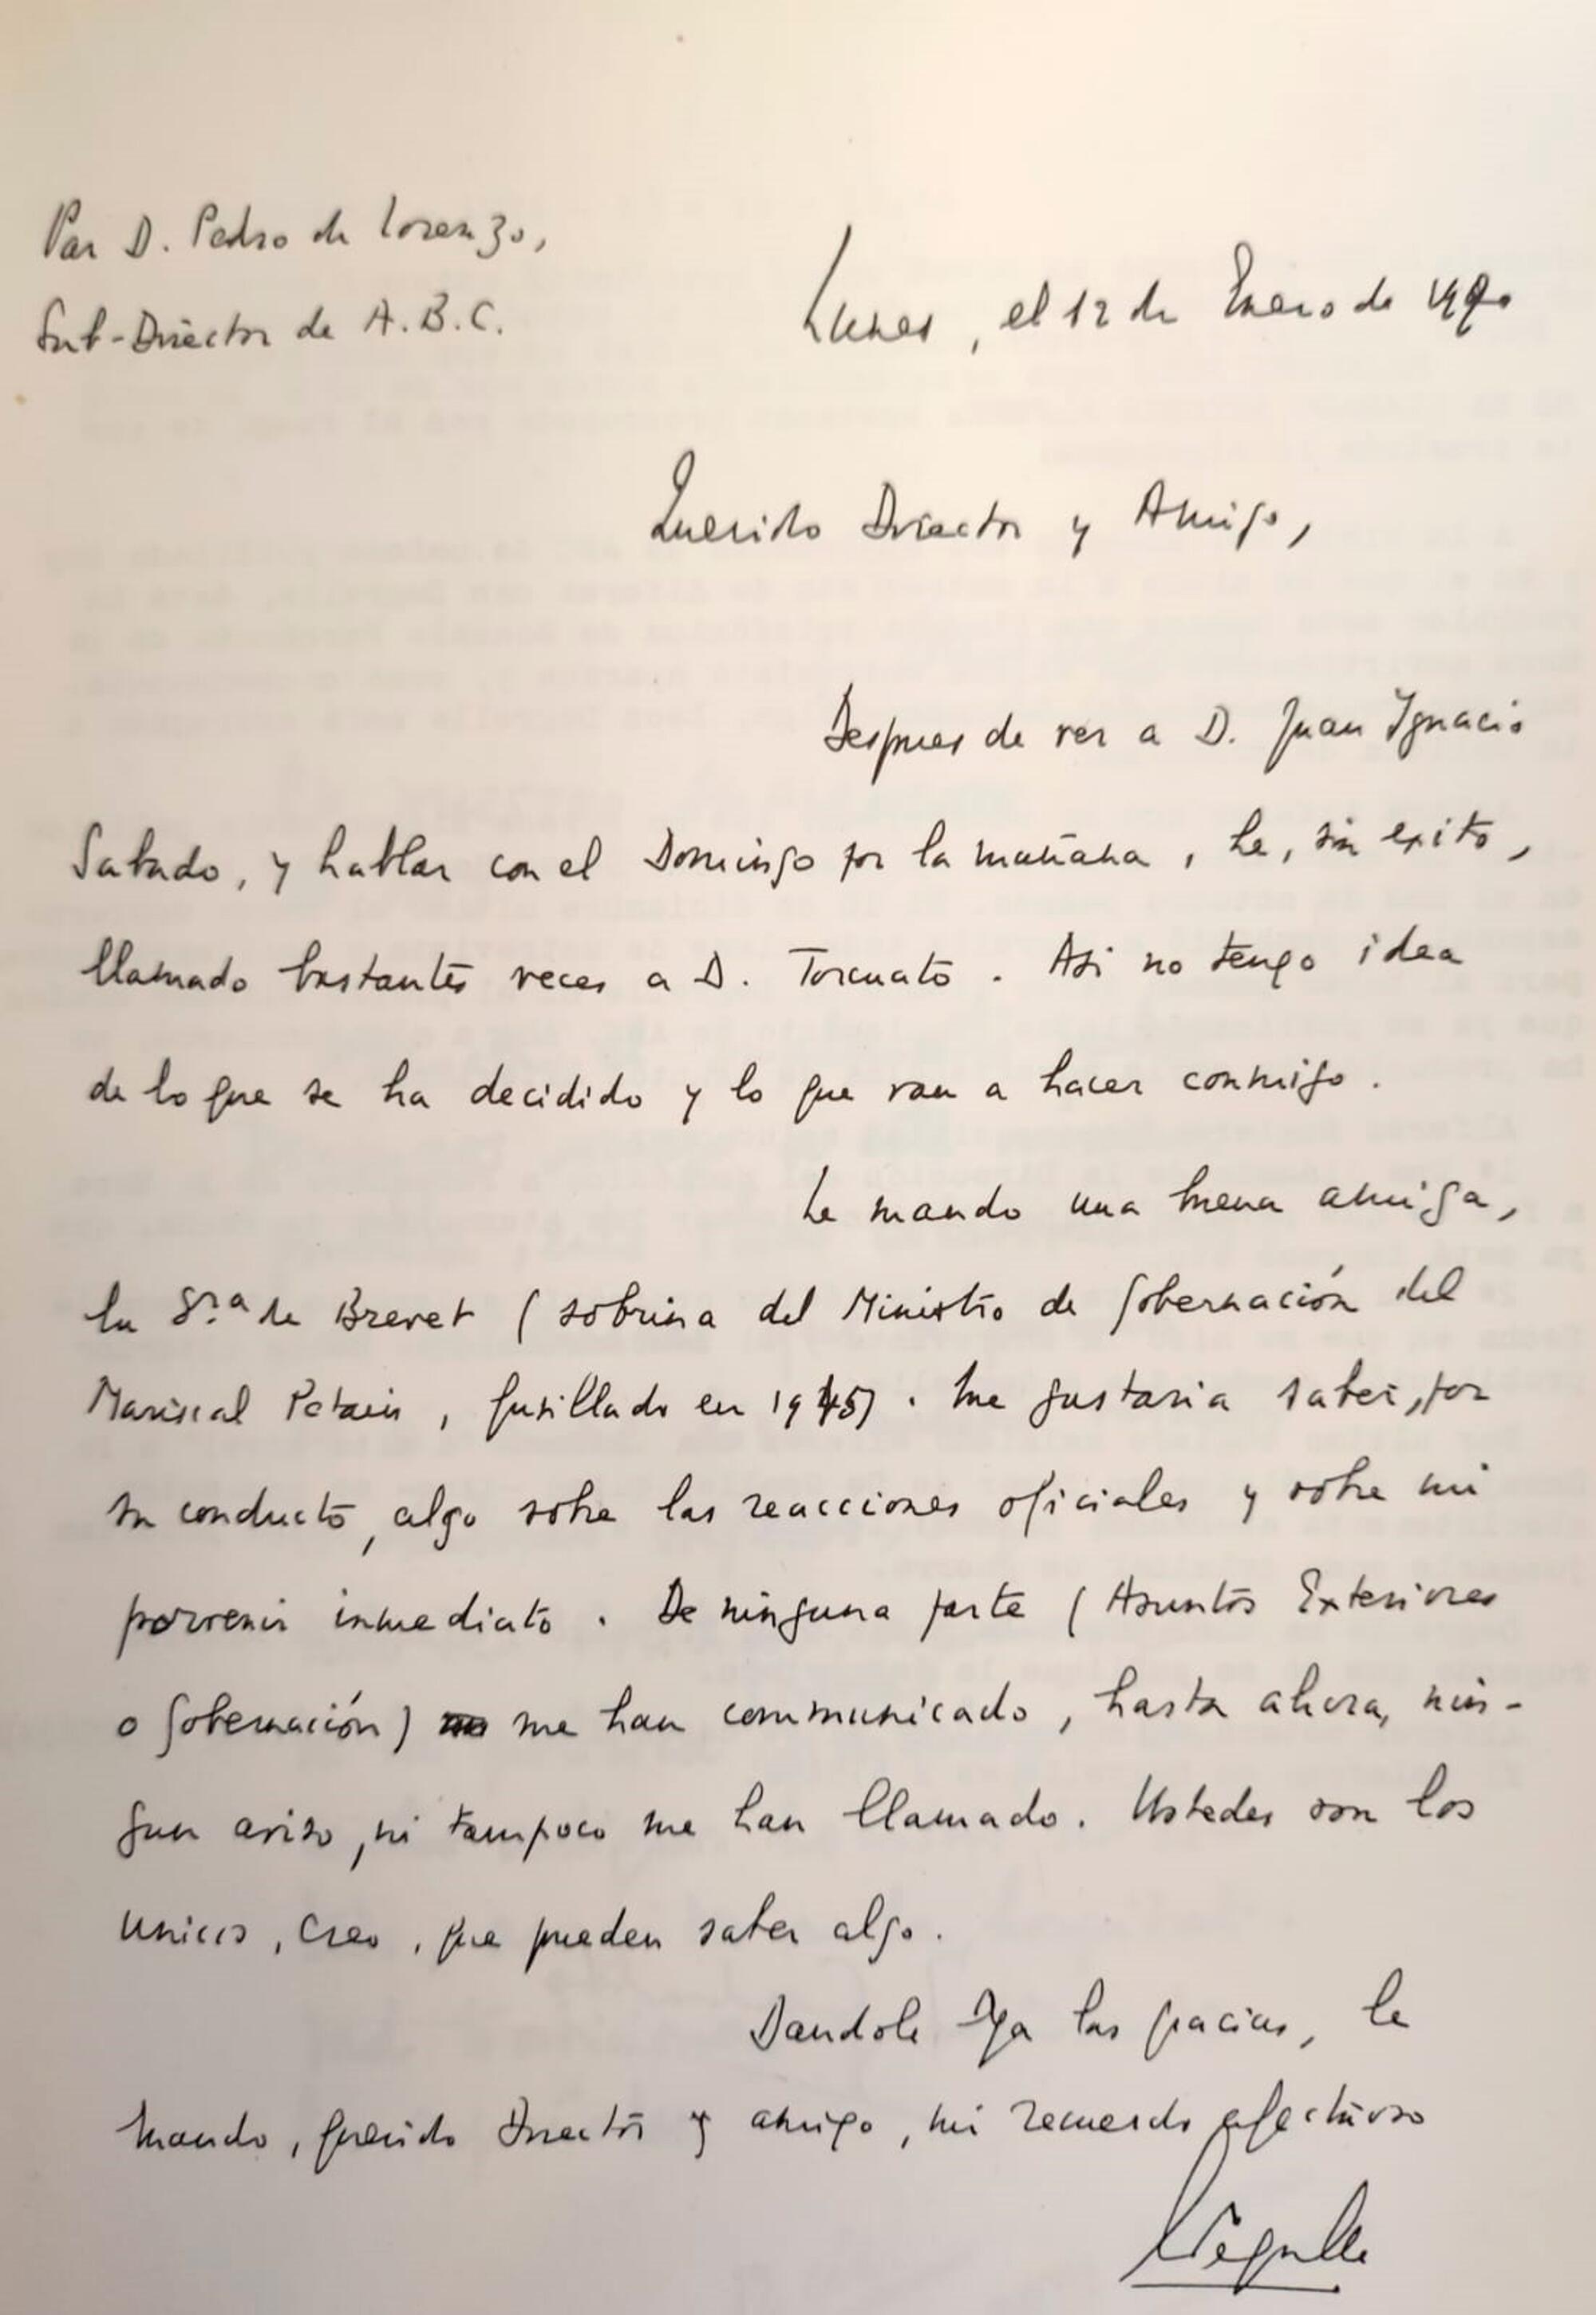 Par D. Pedro de Lorenzo,
Sub-Director de A.B.C.
Lunes, el 12 de Enero de 1970
Querido Director y Amigo,
Despues de ver a D. Juan Ignacio
Sabado, y hablar con el Domingo por la mañana, he, sin exito,
llamado bastantes veces a D. Torcuato. Asi no tengo idea
de lo que se ha decidido y lo que van a hacer conmigo.
Le mando una buena amiga,
la Sra de Brevet (sobrina del Ministro de Gobernación del
Mariscal Petain, fusillado en 1945). Me gustaria saber, por
su conducto, algo sobre las reacciones oficiales y sobre mi
porvenir inmediato. De ninguna parte (Asuntos Exteriores
o Gobernación) me han communicado, hasta ahora, nin-
gun aviso, ni tampoco me han llamado. Ustedes son los
unicos, creo, que pueden saber algo.
Dandole ya las gracias, le
mando, querido Director y amigo, mi recuerdo afectuoso